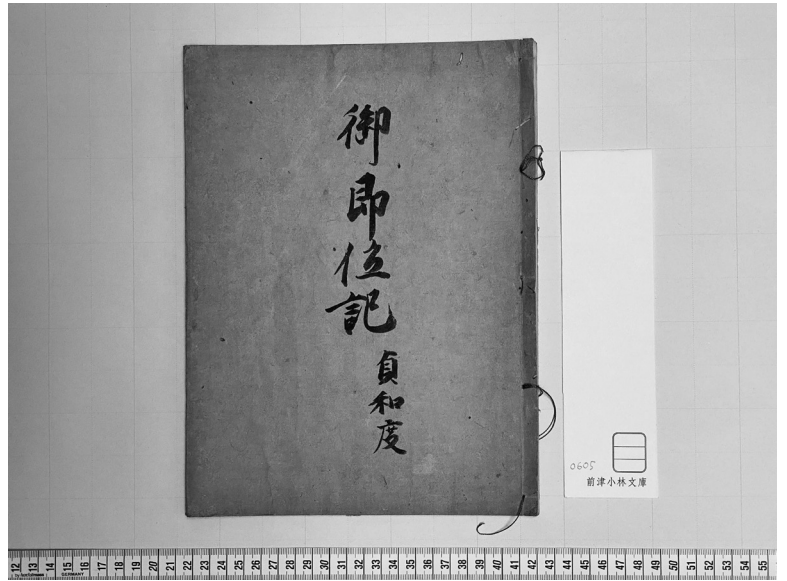 御即位記
貞和度
0605
前津小林文庫
12 13 14 15 16 17 18 19 20 21 22 23 24 25 26 27 28 29 30 31 32 33 34 35 36 37 38 39 40 41 42 43 44 45 46 47 48 49 50 51 52 53 54 55
GERMANY